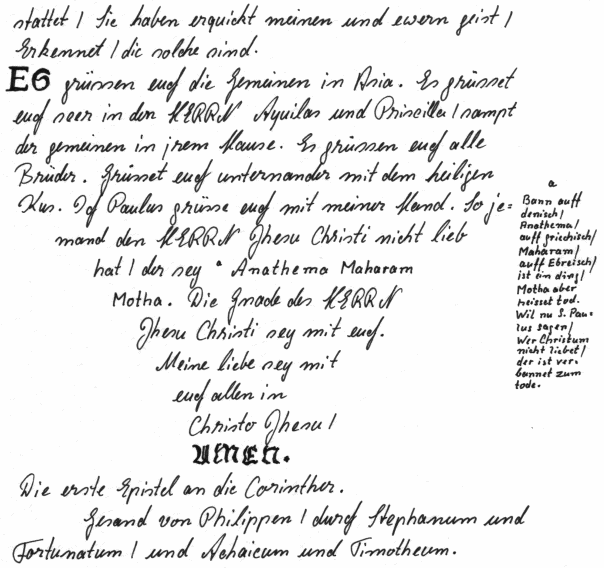 stattet / Sie haben erquickt meinen und ewern geist /
Erkennet / die solche sind.
ES grüssen euch die Gemeinen in Asia. Es grüsset
euch seer in den HERRN Aquilas und Priscilla / sampt
der gemeinen in jrem Hause. Es grüssen euch alle
Brüder. Grüsset euch unternander mit dem heiligen
Kus. Ich Paulus grüsse euch mit meiner Hand. So je=
mand den HERRN Jhesu Christi nicht lieb
hat / der sey a Anathema Maharam
Motha. Die Gnade des HERRN
Jhesu Christi sey mit euch.
Meine liebe sey mit
euch allen in
Christo Jhesu /
AMEN.
a
Bann auff
denisch /
Anathema /
auff griechisch /
Maharam /
auff Ebreisch /
ist ein ding /
Motha aber
heisset tod.
Wil nu S. Pau-
lus sagen /
Wer Christum
nicht liebet /
der ist ver-
bannet zum
tode.
Die erste Epistel an die Corinther.
Gesand von Philippen / durch Stephanum und
Fortunatum / und Achaicum und Timotheum.